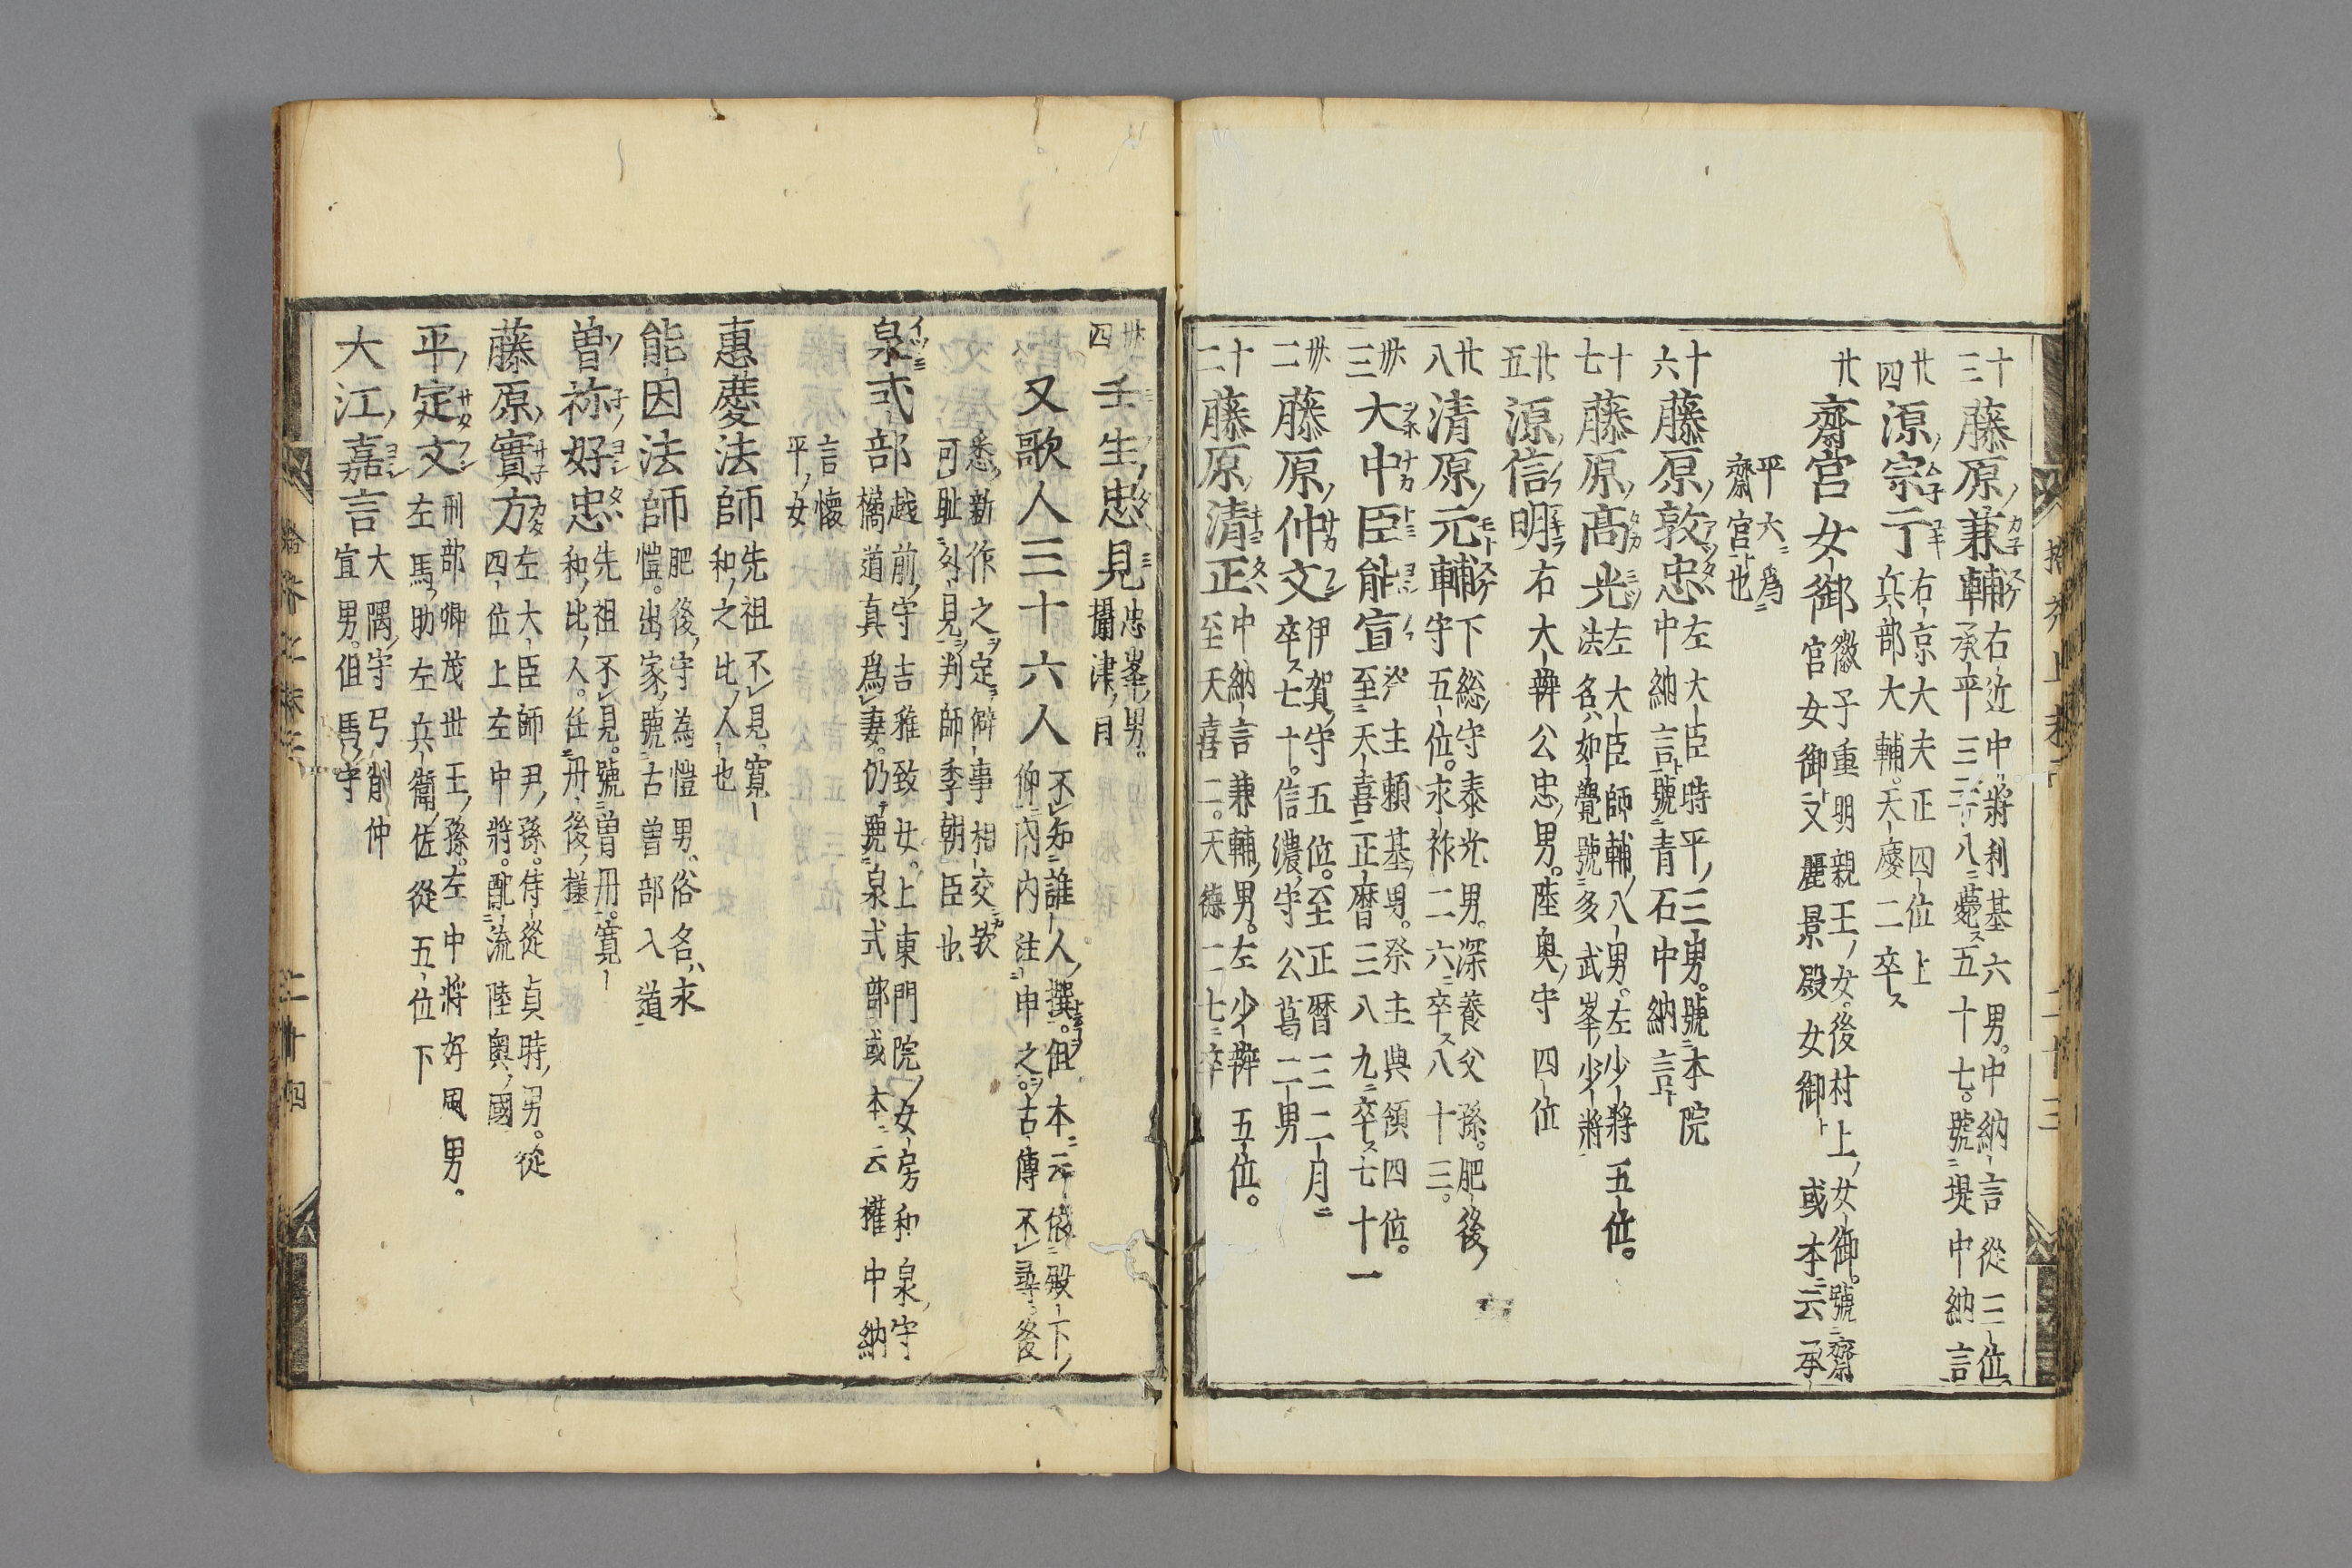 十三 藤原兼輔 右近中將利基六男。中納言從三位
承平三二十八薨五十七。號堤中納言
廿四 源宗于 右京大夫正四位上
兵部大輔。天慶二卒
廿 齋宮女御 徽子重明親王女。後村上女御。號齋
宮女御又麗景殿女御 或本云承
平六為
齋宮也
十六 藤原敦忠 左大臣時平三男。號本院
中納言號青石中納言
十七 藤原高光 左大臣師輔八男。左少將五位。
法名如覺號多武峯少將
廿五 源信明 右大辨公忠男。陸奥守四位
廿八 清原元輔 下総守泰光男。深養父孫。肥後
守五位。永祚二六卒八十三。
卅三 大中臣能宣 祭主頼基男。祭主與領四位。
至天喜正暦三八九卒七十一
卅二 藤原仲文 伊賀守五位。至正暦三二月
卒七十。信濃守公葛二男
十二 藤原清正 中納言兼輔男。左少辨五位。
至天喜二。天德二七卒
卅四 壬生忠見 忠峯男。
攝津目
又歌人三十六人 不知誰人撰。但本云依殿下
仰内内注申之。古傳不尋後
悉新作之定僻事相交歟
可耻外見判師季朝臣也
泉式部 越前守吉雅致女。上東門院女房和泉守
橘道真為妻。仍號泉式部或本云權中納
言懷
平女
惠慶法師 先祖不見寛
和之比人也
能因法師 肥後守為愷男。俗名永
愷。出家號古曽部入道
曽祢好忠 先祖不見。號曽丹。寛
和比人。任丹後掾
藤原實方 左大臣師尹孫。侍從貞時男。從
四位上左中將。配流陸奥國
平定文 刑部卿茂世王孫。左中將好風男。
左馬助左兵衛佐從五位下
大江嘉言 大隅守弓削仲
宣男。但馬守